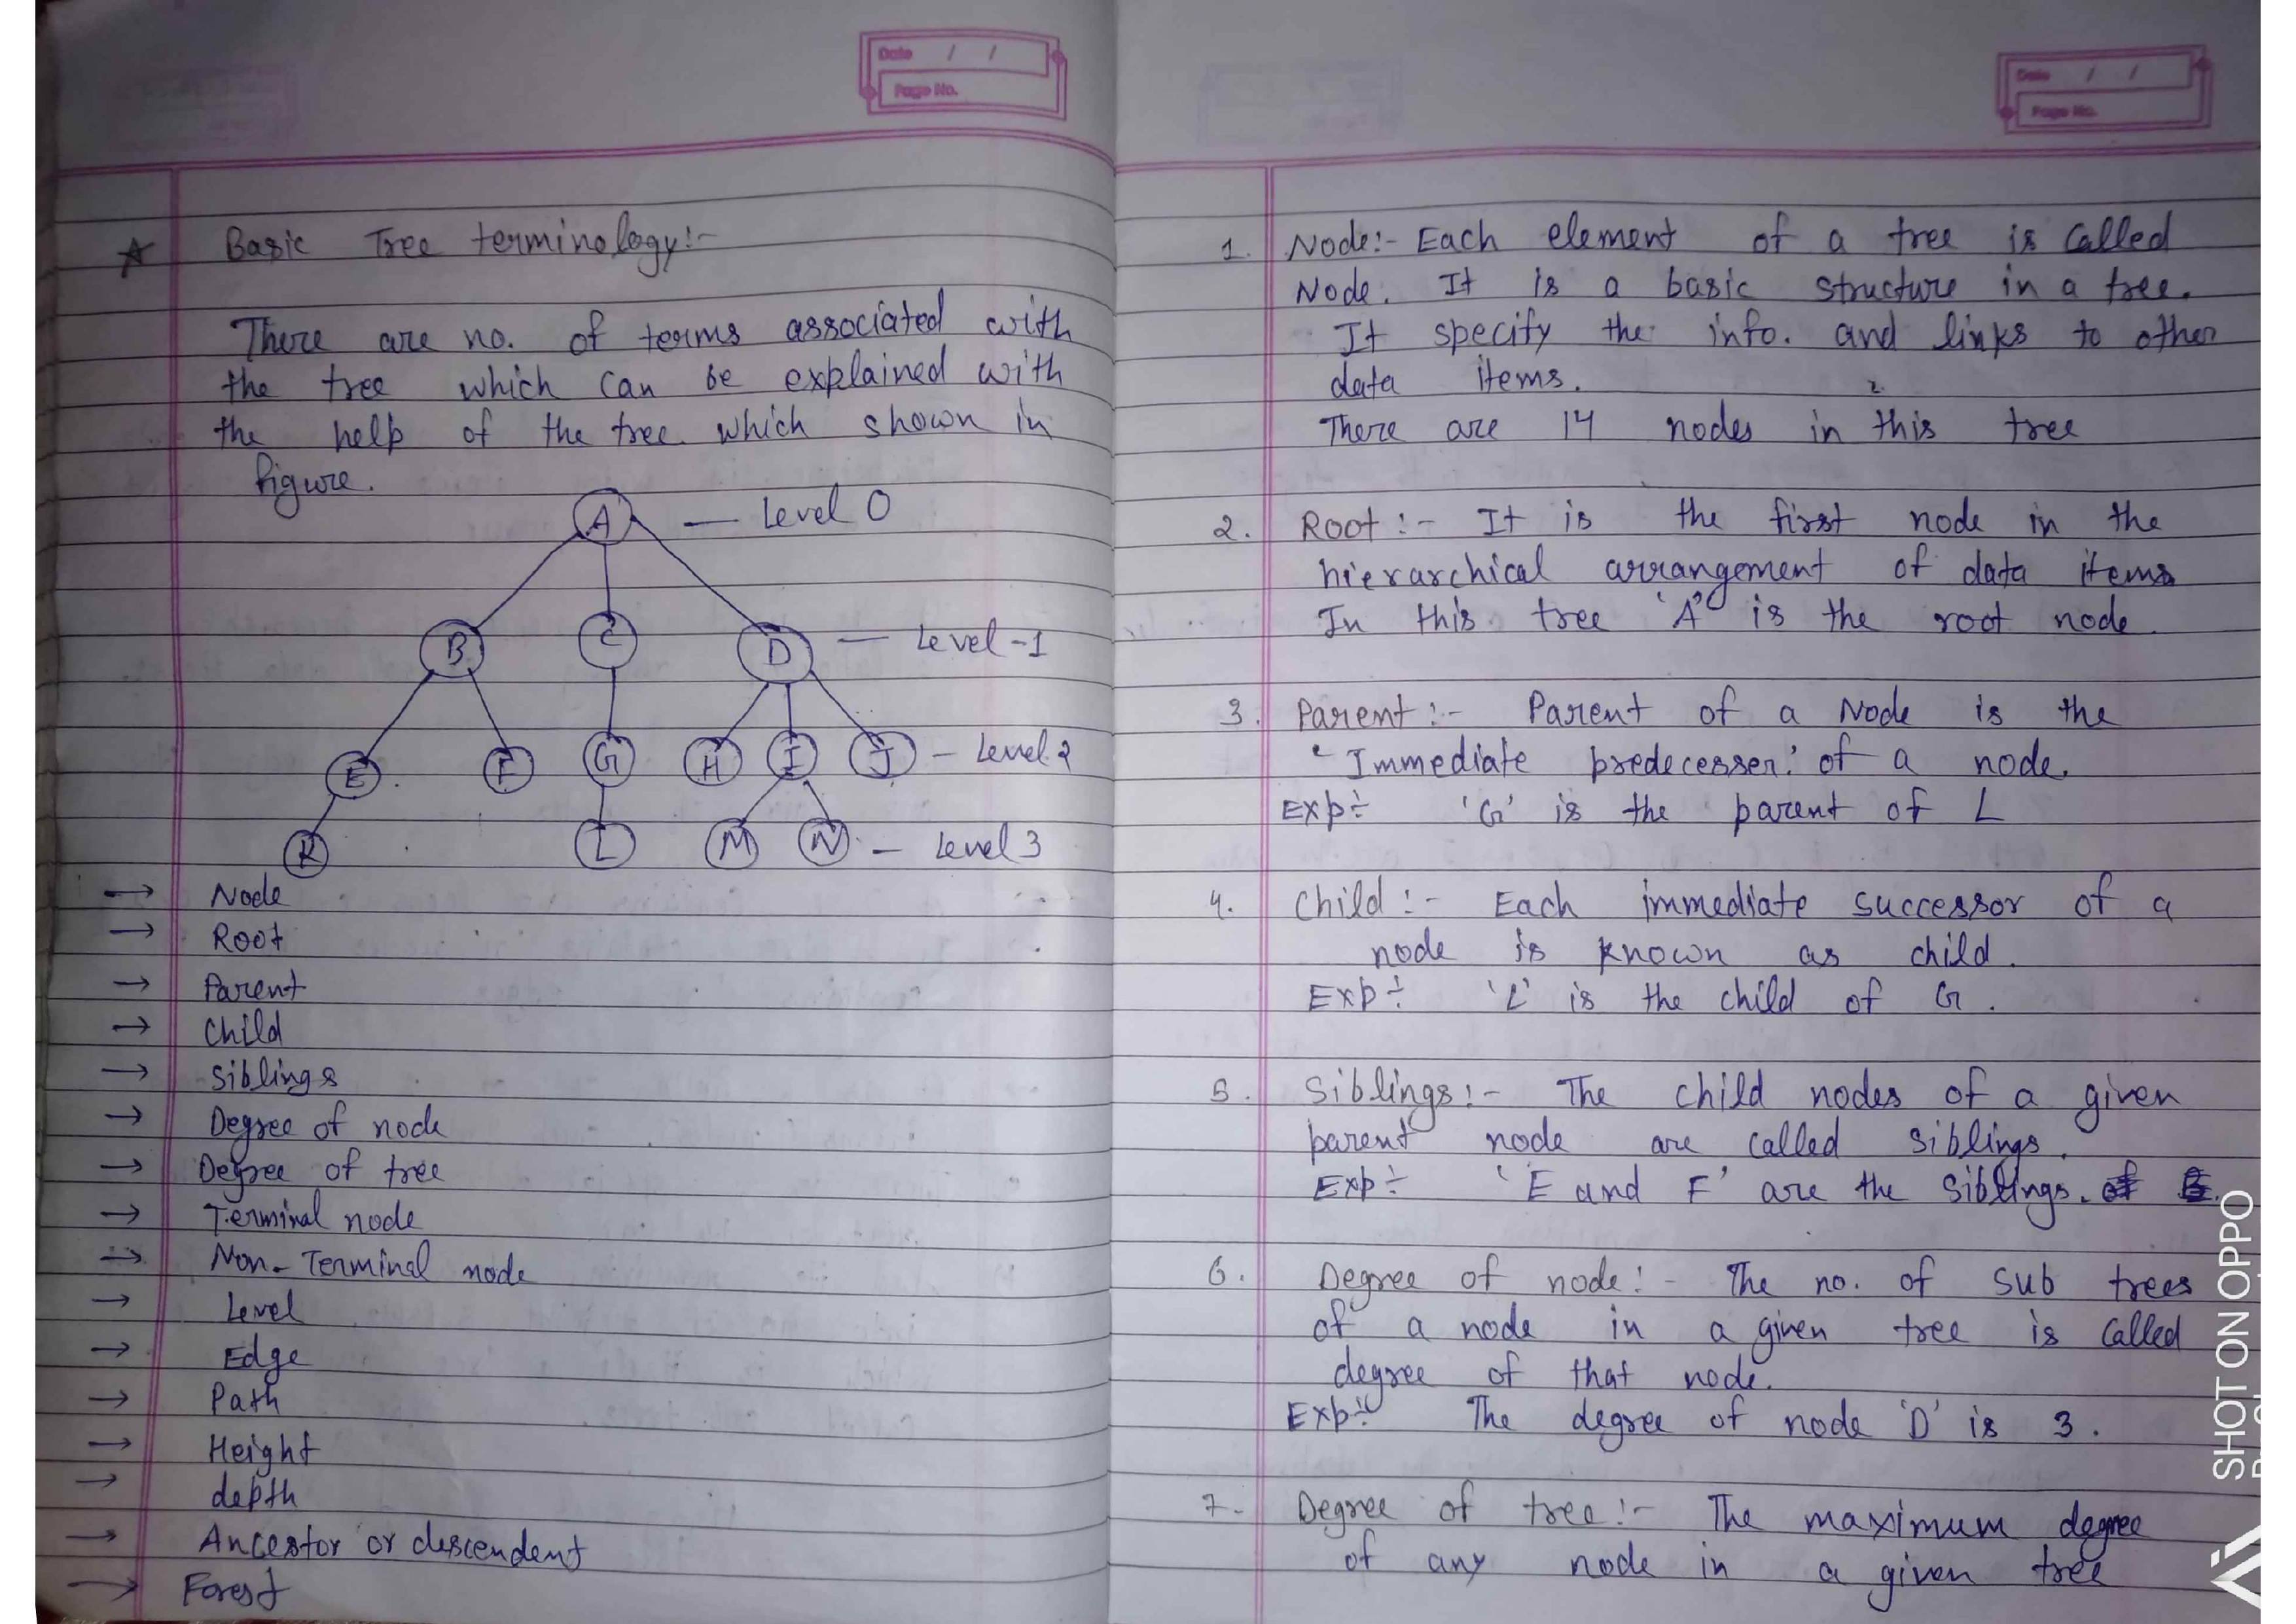 Date / /
Page No.
★ Basic Tree terminology:-
There are no. of terms associated with
the tree which can be explained with
the help of the tree which shown in
figure.
A — Level 0
B C D — Level-1
E F G H I J — Level 2
K L M N — Level 3
→ Node
→ Root
→ Parent
→ Child
→ Siblings
→ Degree of node
→ Degree of tree
→ Terminal node
→ Non-Terminal node
→ Level
→ Edge
→ Path
→ Height
→ depth
→ Ancestor or descendent
→ Forest
Date / /
Page No.
1. Node:- Each element of a tree is called
Node. It is a basic structure in a tree.
It specify the info. and links to other
data items.
There are 14 nodes in this tree
2. Root :- It is the first node in the
hierarchical arrangement of data items
In this tree 'A' is the root node.
3. Parent :- Parent of a Node is the
'Immediate predecesser' of a node.
Exp÷ 'G' is the parent of L
4. Child :- Each immediate successor of a
node is known as child.
Exp÷ 'L' is the child of G.
5. Siblings:- The child nodes of a given
parent node are called siblings.
Exp÷ 'E and F' are the siblings.
6. Degree of node:- The no. of sub trees
of a node in a given tree is called
degree of that node.
Exp÷ The degree of node 'D' is 3.
7. Degree of tree:- The maximum degree
of any node in a given tree
SHOT ON OPPO